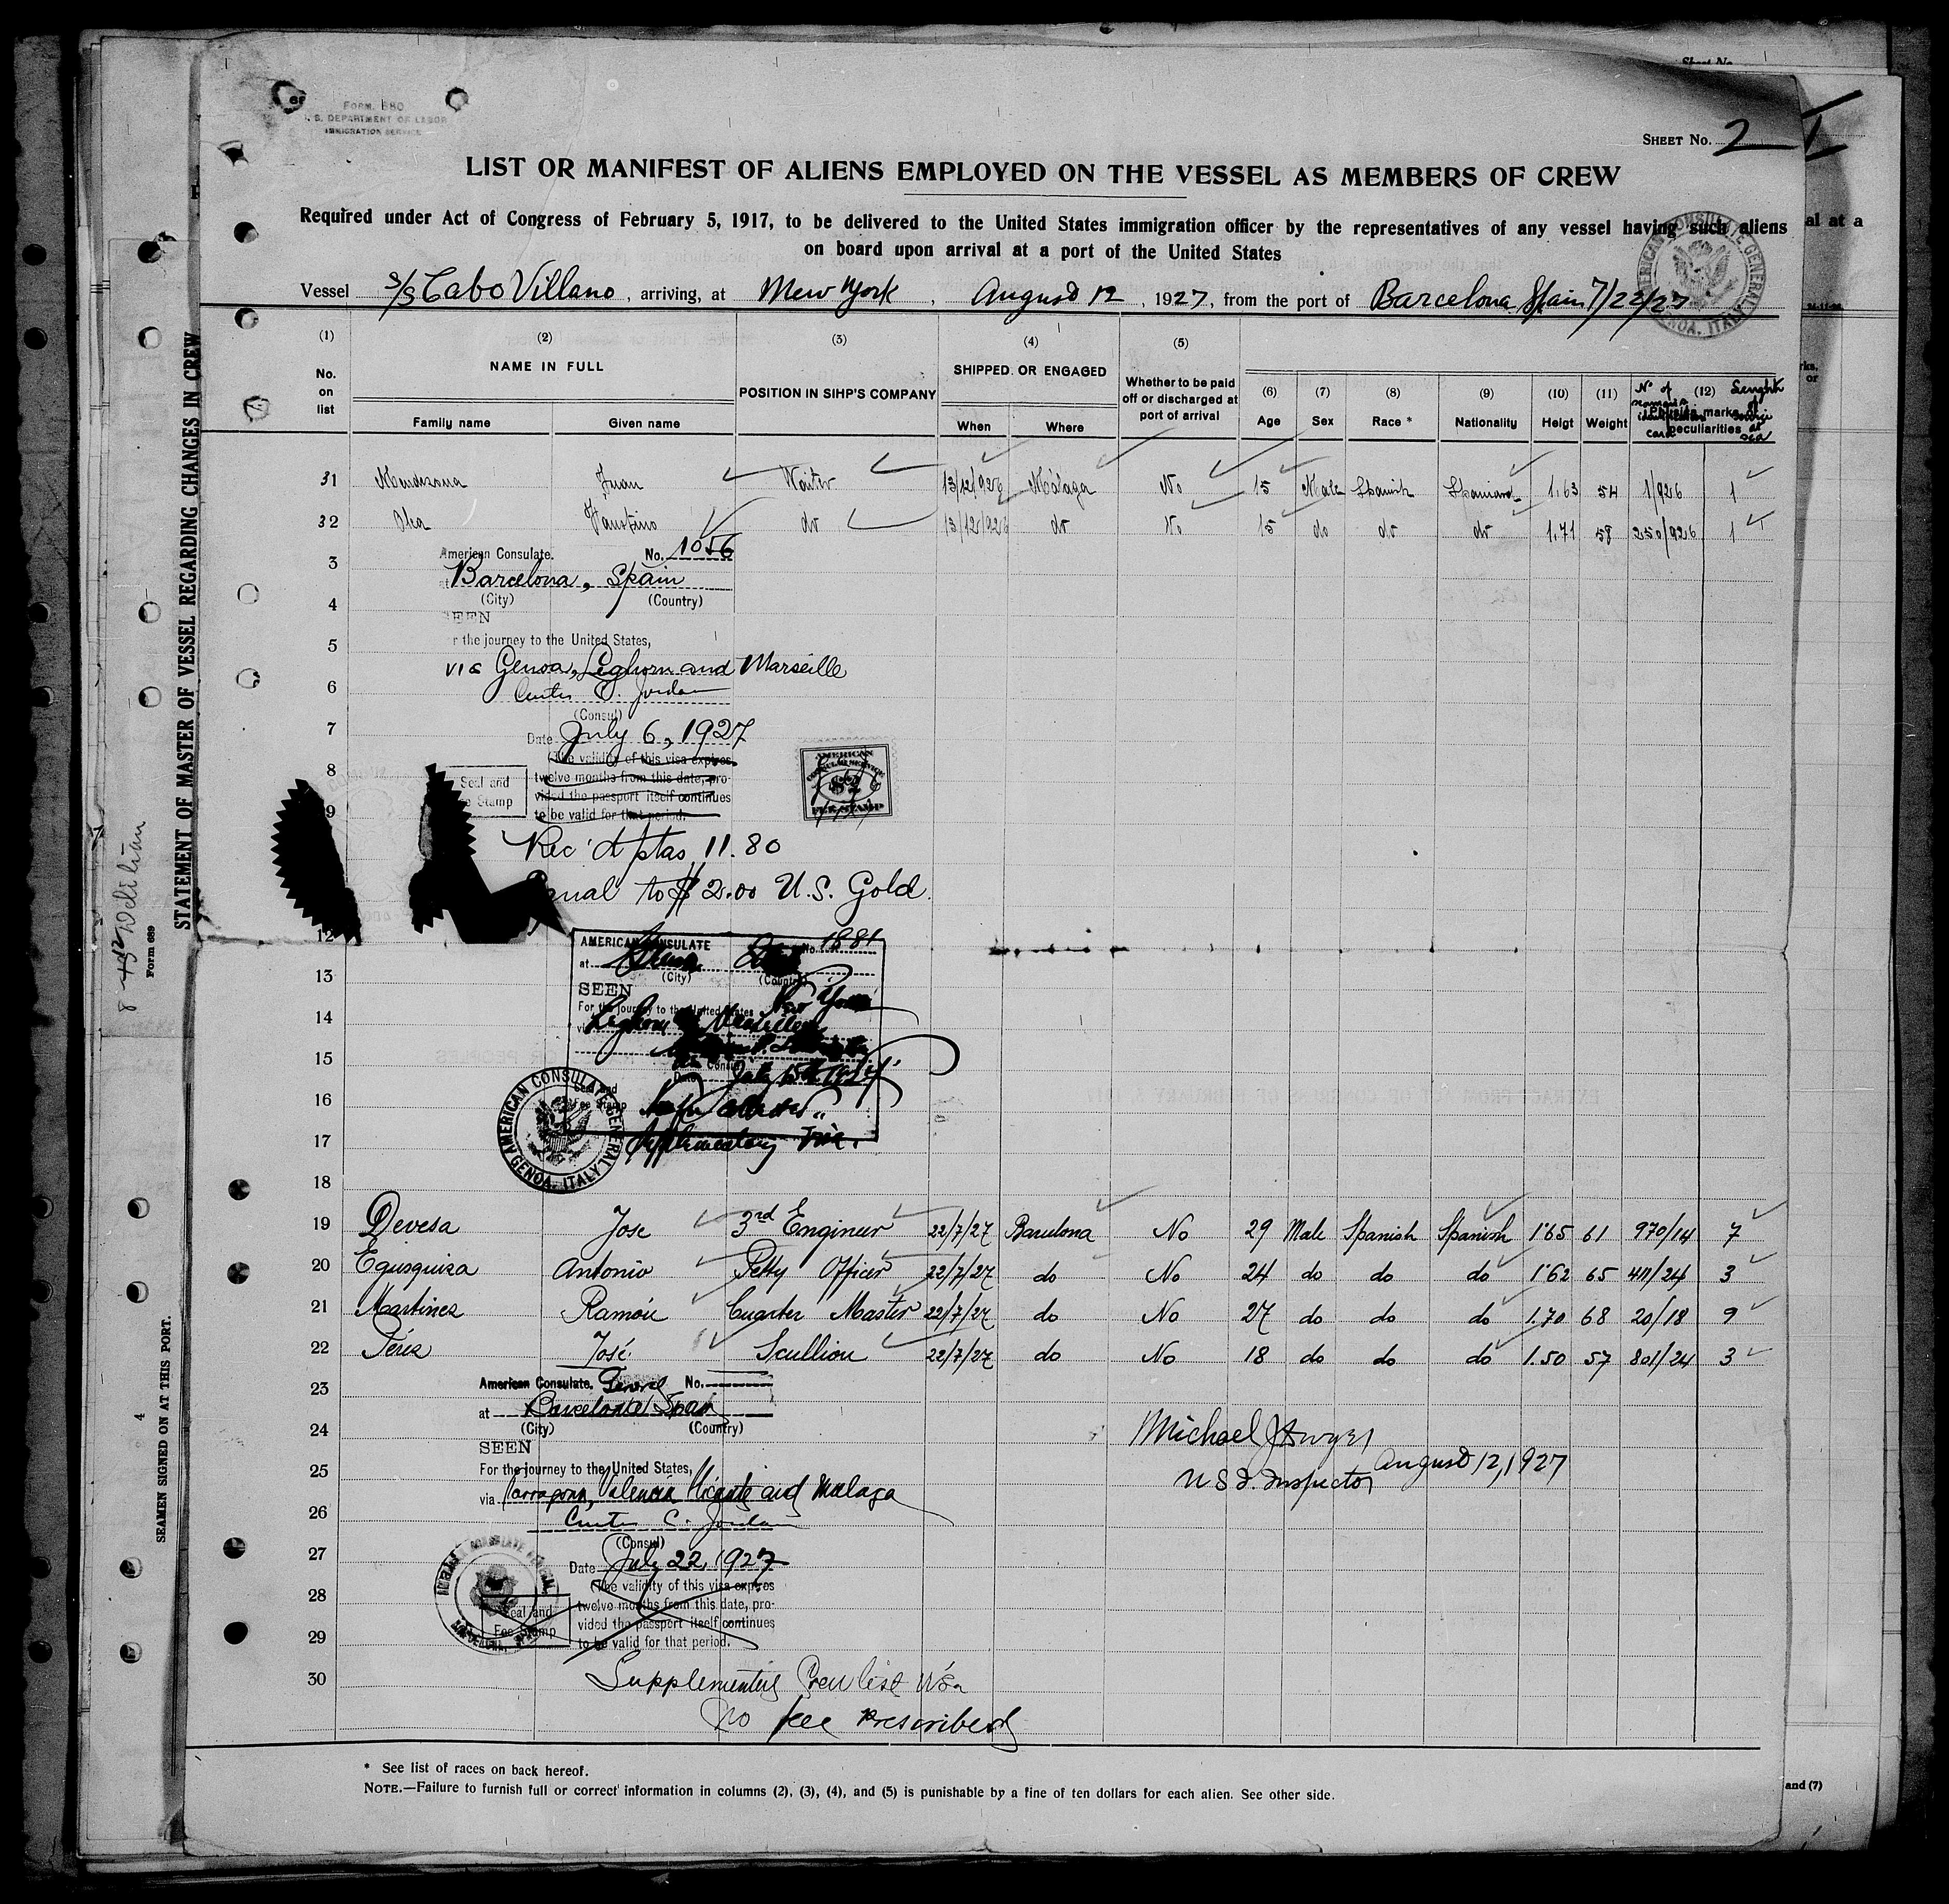 Sheet No.
FORM. 680
U. S. DEPARTMENT OF LABOR
IMMIGRATION SERVICE
SHEET No. 2
LIST OR MANIFEST OF ALIENS EMPLOYED ON THE VESSEL AS MEMBERS OF CREW
Required under Act of Congress of February 5, 1917, to be delivered to the United States immigration officer by the representatives of any vessel having such aliens
on board upon arrival at a port of the United States
al at a
AMERICAN CONSULATE GENERAL GENOA, ITALY
Vessel S/S Cabo Villano, arriving, at New York, August 12, 1927, from the port of Barcelona Spain 7/22/27
(1) (2) (3) (4) (5) (6) (7) (8) (9) (10) (11) (12)
No. on list
NAME IN FULL
Family name Given name
POSITION IN SIHP'S COMPANY
SHIPPED OR ENGAGED
When Where
Whether to be paid off or discharged at port of arrival
Age Sex Race * Nationality Heigt Weight
Nº of seaman's identification card
marks or peculiarities
Lenght of service at sea
31 Juan Waiter 13/12/926 Málaga No 15 Male Spanish Spaniard 1.63 54 1/926 1
32 Faustino do 13/12/926 do No 15 do do do 1.71 58 250/926 1
American Consulate. No. 1056
3
at Barcelona, Spain
(City) (Country)
4
SEEN
5
for the journey to the United States,
via Genoa, Leghorn and Marseille
6
C. Jordan
(Consul)
7
Date July 6, 1927
(The validity of this visa expires
8
twelve months from this date, pro-
vided the passport itself continues
to be valid for that period.
Seal and
Fee Stamp
9
AMERICAN CONSULAR SERVICE $2 FEE STAMP
Rec'd ptas 11.80
Equal to $2.00 U.S. Gold.
12
AMERICAN CONSULATE No. 1881
at
(City) (Country)
13
SEEN
For the journey to the United States New York
14
via Leghorn Marseilles
15
Consul
Date July 15th 1927
Seal and
Fee Stamp
16
No fee collected
17
Supplementary Visa.
AMERICAN CONSULATE GENERAL GENOA, ITALY
18
19 Devesa Jose 3rd Engineer 22/7/27 Barcelona No 29 Male Spanish Spanish 1'65 61 970/14 7
20 Egusquiza Antonio Petty Officer 22/7/27 do No 24 do do do 1'62 65 411/24 3
21 Martinez Ramón Cuarter Master 22/7/27 do No 27 do do do 1.70 68 20/18 9
22 Pérez José Scullion 22/7/27 do No 18 do do do 1.50 57 801/24 3
American Consulate, General No.
23
at Barcelona Spain
(City) (Country)
24
SEEN
Michael J Dwyer
August 12, 1927
U S I. Inspector
25
For the journey to the United States,
via Tarragona, Valencia Alicante and Malaga
26
C. Jordan
(Consul)
27
Date July 22, 1927
(The validity of this visa expires
28
twelve months from this date, pro-
vided the passport itself continues
to be valid for that period.
Seal and
Fee Stamp
29
30
Supplementary Crew list Visa
no fee prescribed
* See list of races on back hereof.
NOTE.—Failure to furnish full or correct information in columns (2), (3), (4), and (5) is punishable by a fine of ten dollars for each alien. See other side.
and (7)
STATEMENT OF MASTER OF VESSEL REGARDING CHANGES IN CREW
Form 689
SEAMEN SIGNED ON AT THIS PORT.
4